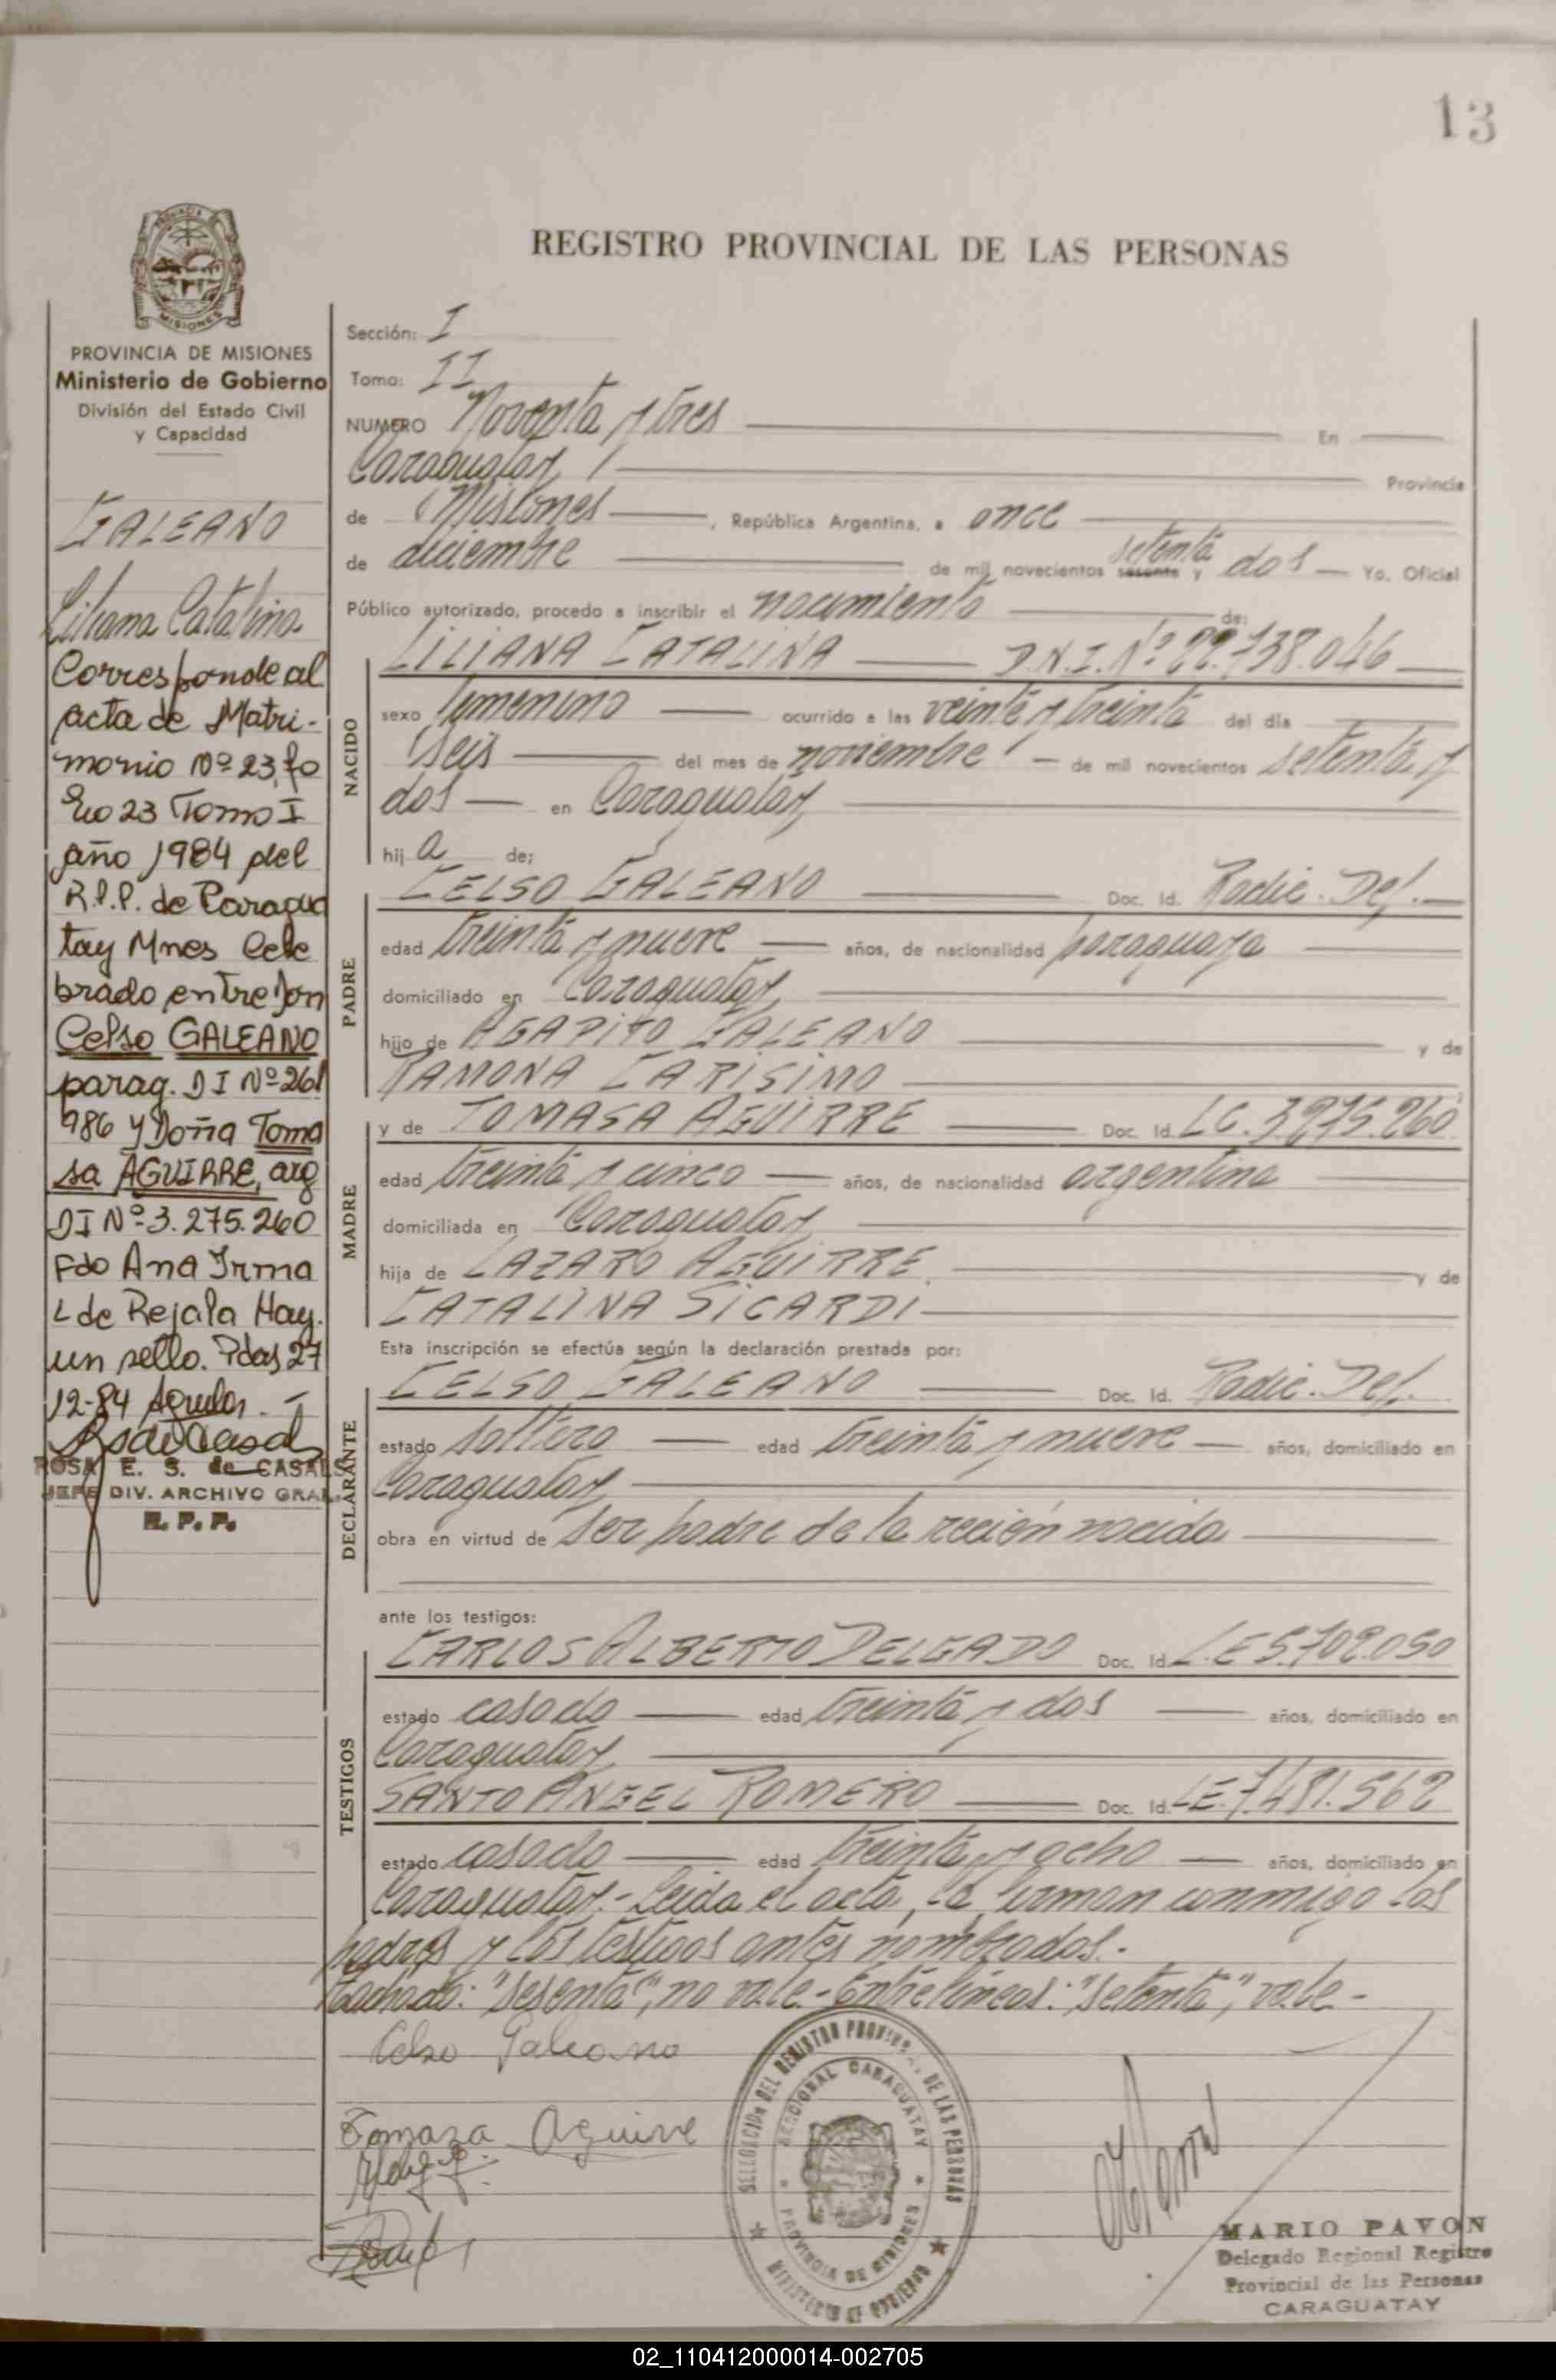 13
REGISTRO PROVINCIAL DE LAS PERSONAS
PROVINCIA DE MISIONES
Ministerio de Gobierno
División del Estado Civil
y Capacidad
GALEANO
Liliana Catalina
Corresponde al
acta de Matri-
monio Nº 23, fo
lio 23 Tomo I
año 1984 del
R.P.P. de Caragua
tay Mnes Cele
brado entre Don
Celso GALEANO
parag. DI Nº 261
986 y Doña Toma
sa AGUIRRE, arg
DI Nº 3.275.260
Fdo Ana Irma
L de Rejala Hay
un sello. Pdas 27
12-84
ROSA E. S. de CASALS
JEFE DIV. ARCHIVO GRAL.
R. P. P.
Sección: I
Tomo: II
NUMERO Noventa y tres En
Caraguatay Provincia
de Misiones, República Argentina, a once
de diciembre de mil novecientos sesenta y setenta dos Yo. Oficial
Público autorizado, procedo a inscribir el nacimiento de:
NACIDO
LILIANA CATALINA D.N.I. Nº 22.738.046
sexo femenino ocurrido a las veinte y treinta del día
seis del mes de noviembre de mil novecientos setenta y
dos en Caraguatay
hij a de;
PADRE
CELSO GALEANO Doc. Id. Radic. Def.
edad treinta y nueve años, de nacionalidad paraguaya
domiciliado en Caraguatay
hijo de AGAPITO GALEANO y de
RAMONA CARISIMO
MADRE
y de TOMASA AGUIRRE Doc. Id. LC. 3.275.260
edad treinta y cinco años, de nacionalidad argentina
domiciliada en Caraguatay
hija de LAZARO AGUIRRE y de
CATALINA SICARDI
Esta inscripción se efectúa según la declaración prestada por:
DECLARANTE
CELSO GALEANO Doc. Id. Radic. Def.
estado soltero edad treinta y nueve años, domiciliado en
Caraguatay
obra en virtud de ser padre de la recién nacida
ante los testigos:
TESTIGOS
CARLOS ALBERTO DELGADO Doc. Id. L.E 5.702.050
estado casado edad treinta y dos años, domiciliado en
Caraguatay
SANTO ANGEL ROMERO Doc. Id. LE. 7.481.562
estado casado edad treinta y ocho años, domiciliado en
Caraguatay.- Leída el acta, la firman conmigo los
padres y los testigos antes nombrados.
Tachado: "sesenta", no vale - Entrelíneas: "setenta", vale -
Celso Galeano
Tomaza Aguirre
DELEGACION DEL REGISTRO PROVINCIAL DE LAS PERSONAS
SECCIONAL CARAGUATAY
PROVINCIA DE MISIONES
MINISTERIO DE GOBIERNO
MARIO PAVON
Delegado Regional Registro
Provincial de las Personas
CARAGUATAY
02_110412000014-002705